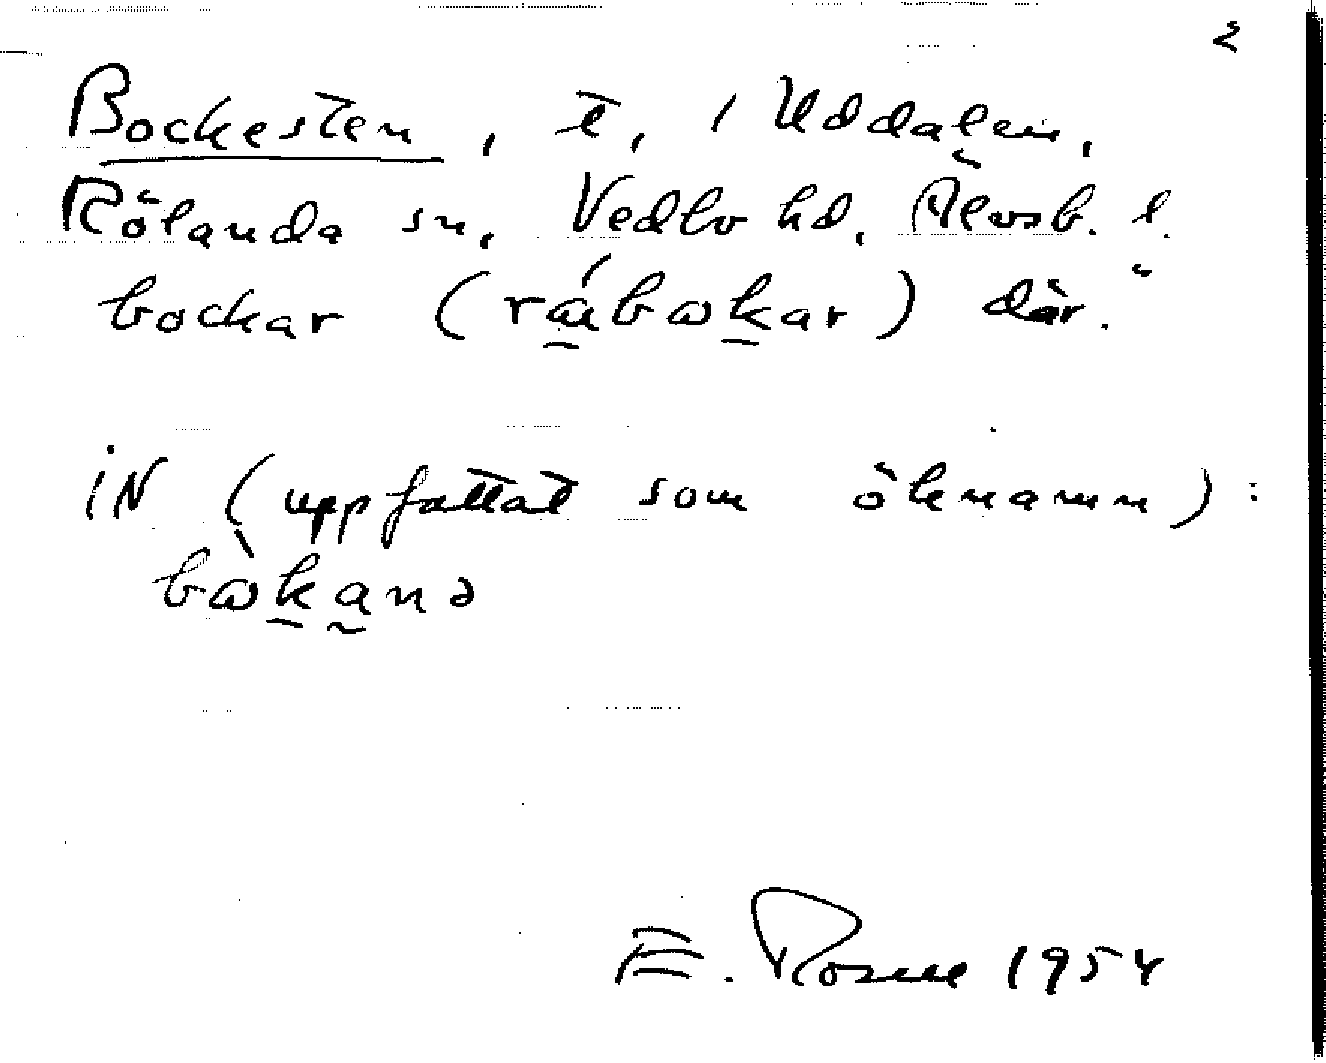 2
Bockesten, t, i Uddalen,
Rölanda sn, Vedbo hd, Älvsb. l.
bockar (råbåkar) där."
iN (uppfattat som öknamn):
bòkanə
E. Rosell 1954